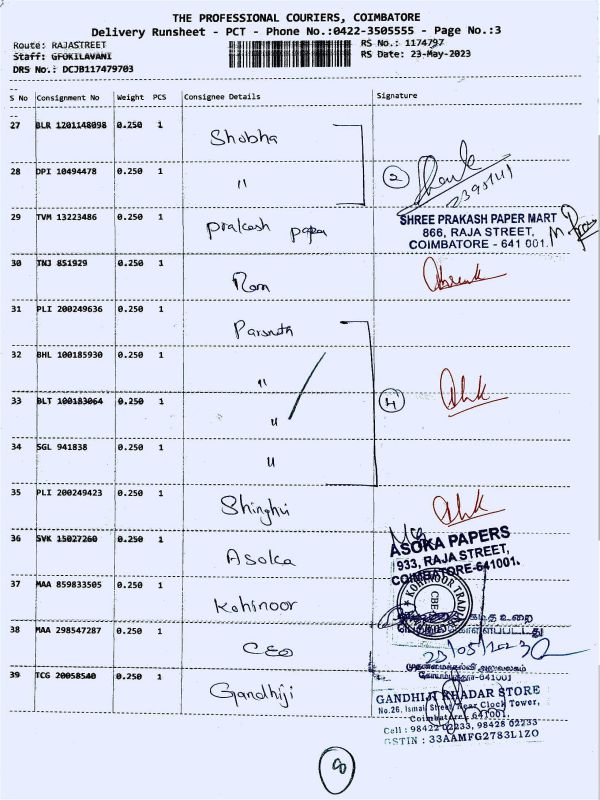 THE PROFESSIONAL COURIERS, COIMBATORE
Delivery Runsheet - PCT - Phone No.:0422-3505555 - Page No.:3
Route: RAJASTREET
RS No.: 1174797
Staff: GFOKILAVANI
RS Date: 23-May-2023
DRS No.: DCJB117479703
S No Consignment No Weight PCS Consignee Details Signature
27 BLR 1201148098 0.250 1 Shobha
28 DPI 10494478 0.250 1 "
2
29 TVM 13223486 0.250 1 prakash paper
SHREE PRAKASH PAPER MART
866, RAJA STREET,
COIMBATORE - 641 001.
30 TNJ 851929 0.250 1 Ram
31 PLI 200249636 0.250 1 Parsnath
32 BHL 100185930 0.250 1 "
33 BLT 100183064 0.250 1 "
4
34 SGL 941838 0.250 1 "
35 PLI 200249423 0.250 1 Shinghvi
36 SVK 15027260 0.250 1 Asoka
ASOKA PAPERS
933, RAJA STREET,
COIMBATORE-641001.
37 MAA 859833505 0.250 1 Kohinoor
KOHINOOR TRAD
CBE
38 MAA 298547287 0.250 1 CEO
உறை
23/05/2023
முதன்மைக்கல்வி அலுவலகம்
கோயம்புத்தூர்-641001
39 TCG 20058540 0.250 1 Gandhiji
GANDHIJI KHADAR STORE
No.26, Ismail Street, Near Clock Tower,
Coimbatore - 641001.
Cell : 98422 02233, 98428 02233
GSTIN : 33AAMFG2783L1ZO
8